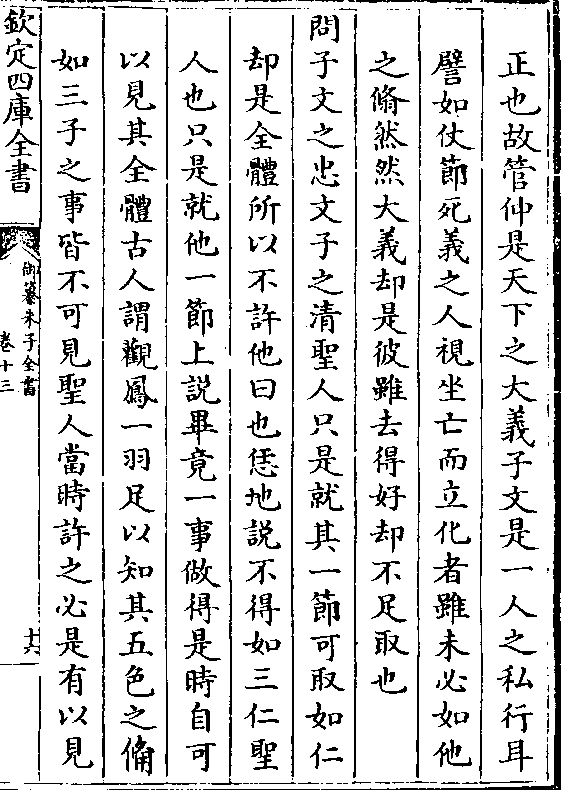 正也故管仲是天下之大義子文是一人之私行耳
譬如仗節死義之人視坐亡而立化者雖未必如他
之翛然然大義却是彼雖去得好却不足取也
問子文之忠文子之清聖人只是就其一節可取如仁
却是全體所以不許他曰也恁地説不得如三仁聖
人也只是就他一節上説畢竟一事做得是時自可
以見其全體古人謂觀鳳一羽足以知其五色之備
如三子之事皆不可見聖人當時許之必是有以見
欽定四庫全書
御纂朱子全書
卷十三
十六